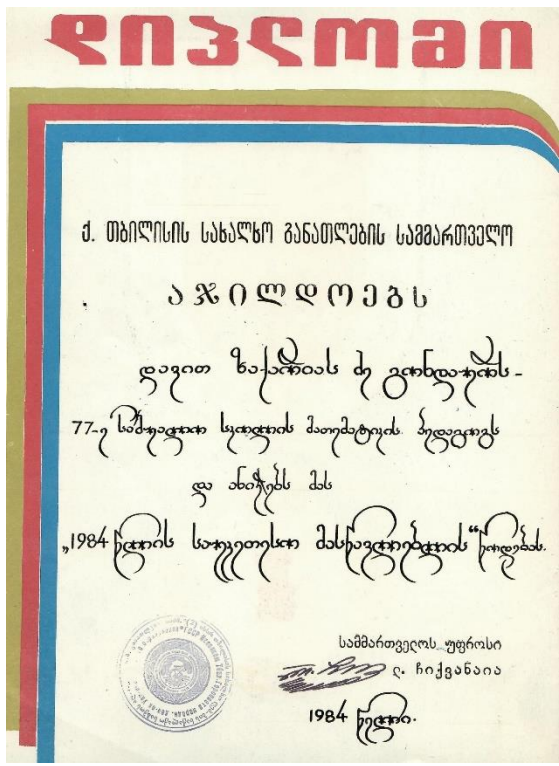 დიპლომი
ქ. თბილისის სახალხო განათლების სამმართველო
აჯილდოებს
დავით ზაქარიას ძე გონდაურს -
77-ე საშუალო სკოლის მათემატიკის პედაგოგს
და ანიჭებს მას
„1984 წლის საუკეთესო მასწავლებლის“ წოდებას.
სამმართველოს უფროსი
ლ. ჩიქვანაია
1984 წელი.